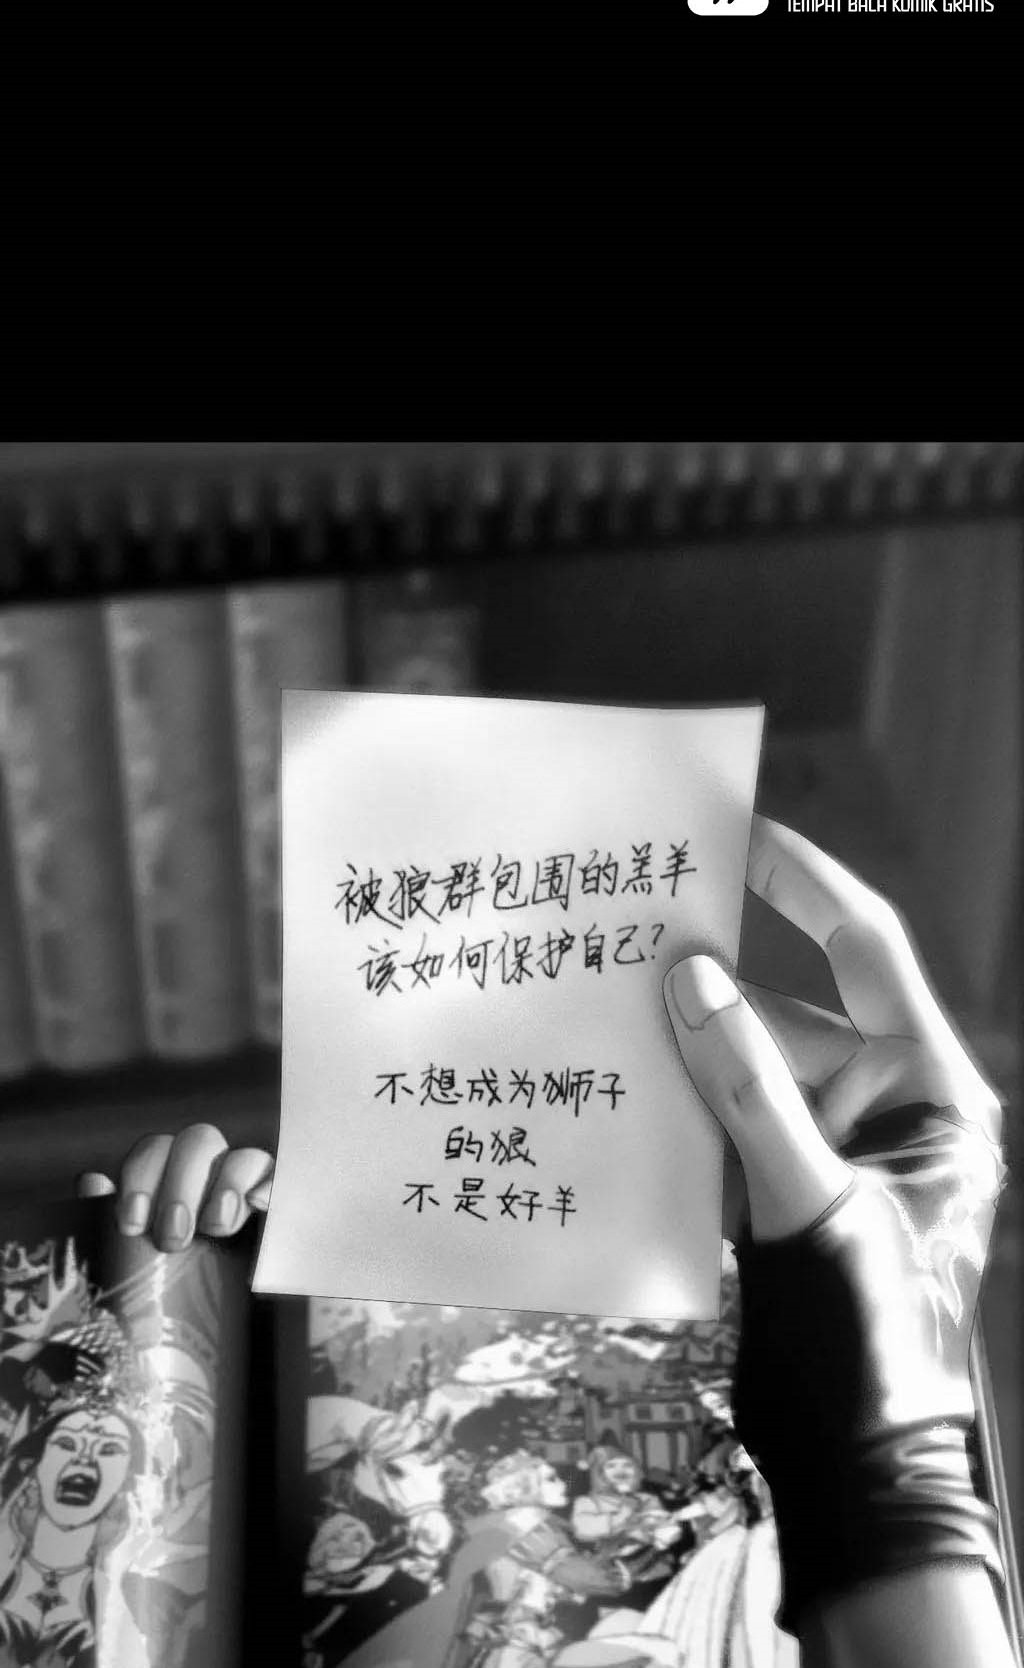 TEMPAT BACA KOMIK GRATIS
被狼群包围的羔羊
该如何保护自己?
不想成为狮子
的狼
不是好羊